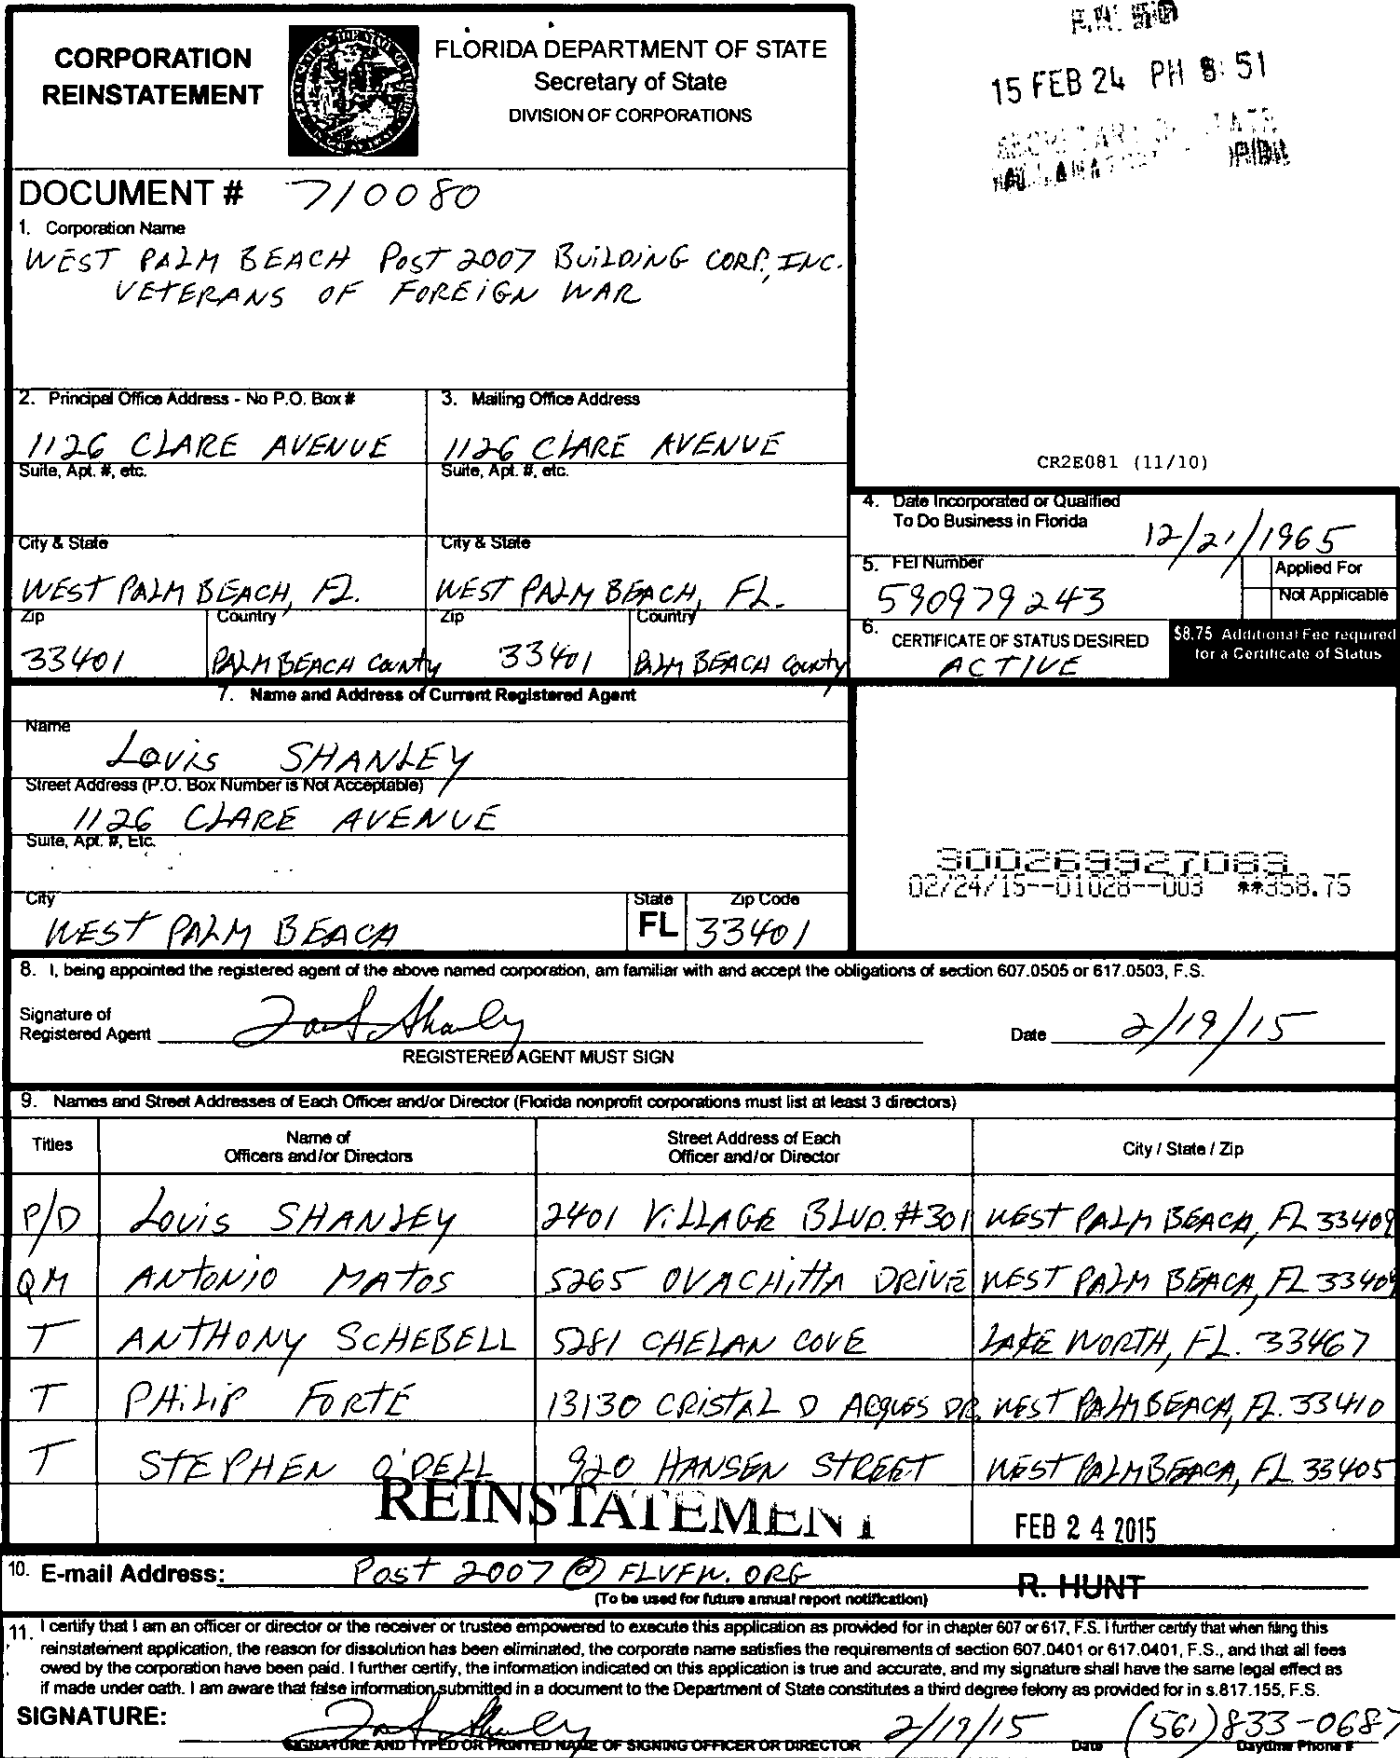 CORPORATION
REINSTATEMENT
FLORIDA DEPARTMENT OF STATE
Secretary of State
DIVISION OF CORPORATIONS
15 FEB 24 PH 8:51
DOCUMENT # 710080
1. Corporation Name
WEST PALM BEACH POST 2007 BUILDING CORP., INC.
VETERANS OF FOREIGN WAR
2. Principal Office Address - No P.O. Box #
3. Mailing Office Address
1126 CLARE AVENUE
1126 CLARE AVENUE
Suite, Apt. #, etc.
Suite, Apt. #, etc.
CR2E081 (11/10)
City & State
City & State
WEST PALM BEACH, FL.
WEST PALM BEACH, FL.
Zip
Country
Zip
Country
33401
PALM BEACH County
33401
PALM BEACH County
4. Date Incorporated or Qualified
To Do Business in Florida
12/21/1965
5. FEI Number
590979243
Applied For
Not Applicable
6. CERTIFICATE OF STATUS DESIRED
ACTIVE
$8.75 Additional Fee required
for a Certificate of Status
7. Name and Address of Current Registered Agent
Name
Louis SHANLEY
Street Address (P.O. Box Number is Not Acceptable)
1126 CLARE AVENUE
Suite, Apt. #, Etc.
City
State
Zip Code
WEST PALM BEACH
FL
33401
300269927083
02/24/15--01028--003 **358.75
8. I, being appointed the registered agent of the above named corporation, am familiar with and accept the obligations of section 607.0505 or 617.0503, F.S.
Signature of
Registered Agent
Date 2/19/15
REGISTERED AGENT MUST SIGN
9. Names and Street Addresses of Each Officer and/or Director (Florida nonprofit corporations must list at least 3 directors)
Titles
Name of
Officers and/or Directors
Street Address of Each
Officer and/or Director
City / State / Zip
P/D Louis SHANLEY 2401 VILLAGE BLVD. #301 WEST PALM BEACH, FL 33409
QM ANTONIO MATOS 5265 OVACHITTA DRIVE WEST PALM BEACH, FL
T ANTHONY SCHEBELL 5281 CHELAN COVE LAKE WORTH, FL. 33467
T PHILIP FORTE 13130 CRISTAL D ACQUES DR. WEST PALM BEACH, FL. 33410
T STEPHEN O'DELL 920 HANSEN STREET WEST PALM BEACH, FL 33405
REINSTATEMENT
FEB 24 2015
10. E-mail Address: Post 2007@FLVFW.ORG
R. HUNT
(To be used for future annual report notification)
11. I certify that I am an officer or director or the receiver or trustee empowered to execute this application as provided for in chapter 607 or 617, F.S. I further certify that when filing this
reinstatement application, the reason for dissolution has been eliminated, the corporate name satisfies the requirements of section 607.0401 or 617.0401, F.S., and that all fees
owed by the corporation have been paid. I further certify, the information indicated on this application is true and accurate, and my signature shall have the same legal effect as
if made under oath. I am aware that false information submitted in a document to the Department of State constitutes a third degree felony as provided for in s.817.155, F.S.
SIGNATURE:
2/19/15 (561)833-0687
SIGNATURE AND TYPED OR PRINTED NAME OF SIGNING OFFICER OR DIRECTOR
Date
Daytime Phone #